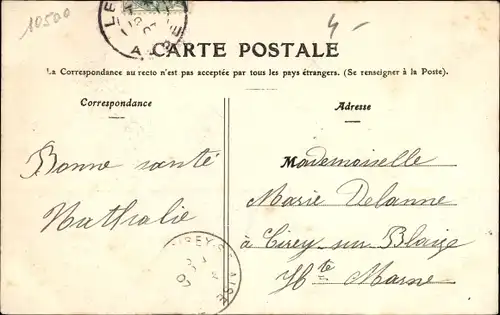 10500
4-
CARTE POSTALE
La Correspondance au recto n'est pas acceptée par tous les pays étrangers. (Se renseigner à la Poste).
Correspondance
Adresse
Bonne santé
Nathalie
Mademoiselle
Marie Delanne
à Cirey-sur-Blaise
Hte Marne